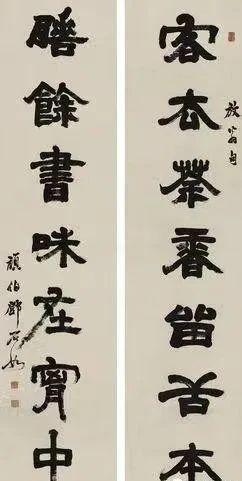 放翁句
客去茶香留舌本
睡餘書味在胷中
頑伯鄧石如